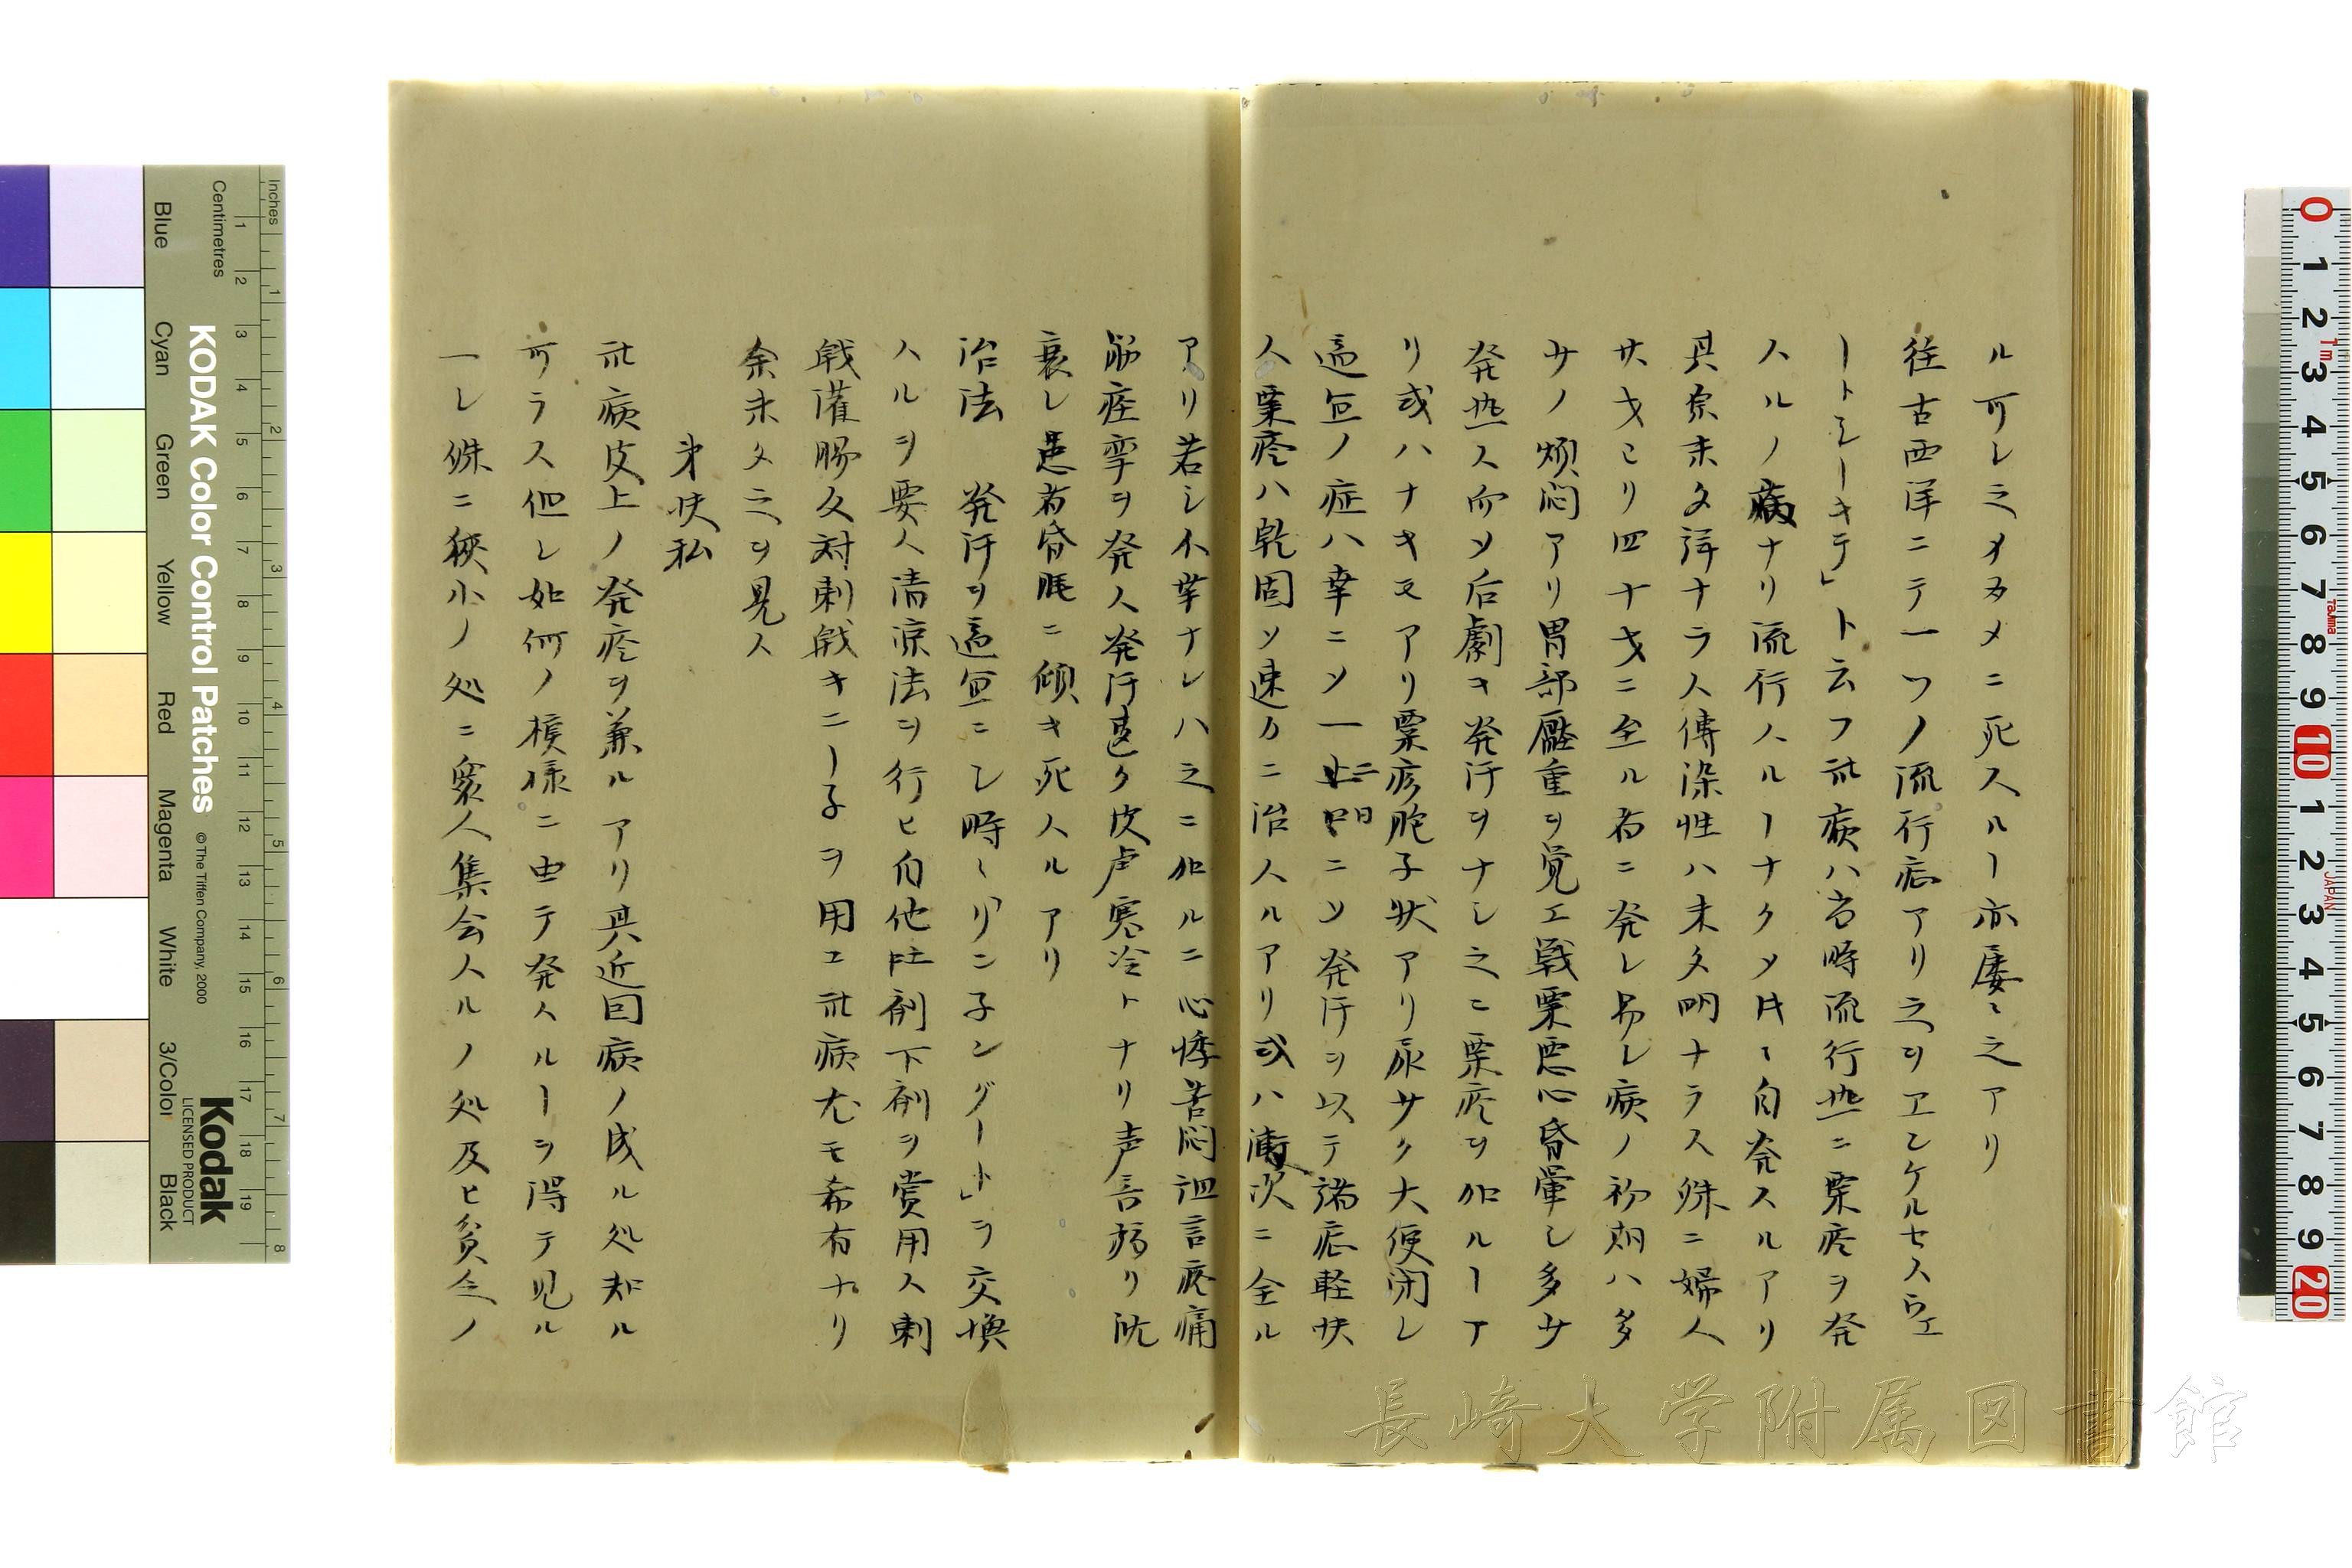 ル可レ之カタメニ死スルヿ亦屡々之アリ
往古西洋ニテ一ツノ流行症アリ之ヲエンケルセスウエ
ートシーキテ」ト云フ此病ハ当時流行熱ニ粟疹ヲ発
スルノ病ナリ流行スルヿナクメ時々自発スルアリ
其原未タ詳ナラス傳染性ハ未タ明ナラス殊ニ婦人
廿才ヨリ四十才ニ至ル者ニ発シ易シ病ノ初期ハ多
少ノ煩悶アリ胃部壓重ヲ覚エ戦栗悪心昏暈シ多少
発熱ス而メ后劇キ発汗ヲナシ之ニ粟疹ヲ加ルヿア
リ或ハナキモアリ粟疹胞子状アリ尿サク大便閉シ
適宜ノ症ハ幸ニメ一二日ニメ発汗ヲ以テ諸症軽快
ス粟疹ハ乾固メ速カニ治スルアリ或ハ漸次ニ全ル
アリ若シ不幸ナレハ之ニ加ルニ心悸苦悶譫言疼痛
筋痙攣ヲ発ス発汗甚タ皮膚寒冷トナリ声音 リ沈
衰シ患者昏眠ニ傾キ死スルアリ
治法 発汗ヲ適宜ニシ時々「リンネングート」ヲ交換
スルヲ要ス清涼法ヲ行ヒ自他吐剤下剤ヲ賞用ス刺
戟灌腸反対刺戟キニーネヲ用エ此病尤モ希有ナリ
余未タ之ヲ見ス
弟扶私
此病皮上ノ発疹ヲ兼ルアリ其近因病ノ成ル処知ル
可ラス但シ如何ノ模様ニ由テ発スルヿヲ得テ見ル
一シ殊ニ狹小ノ処ニ衆人集会スルノ処及ヒ貧乏ノ
長崎大学附属図書館
KODAK Color Control Patches
© The Tiffen Company, 2000
Kodak
LICENSED PRODUCT
Inches
Centimetres
1 2 3 4 5 6 7 8
1 2 3 4 5 6 7 8 9 10 11 12 13 14 15 16 17 18 19
Blue Cyan Green Yellow Red Magenta White 3/Color Black
0 1 2 3 4 5 6 7 8 9 10 1 2 3 4 5 6 7 8 9 20
1m
TAJIMA
JAPAN